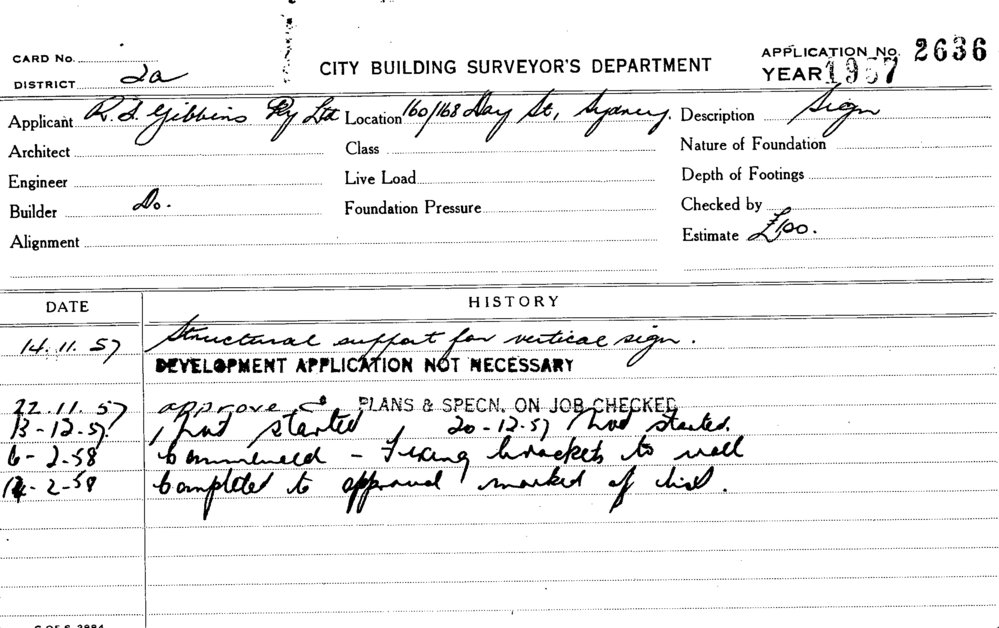 CARD No.
DISTRICT 2a
CITY BUILDING SURVEYOR'S DEPARTMENT
APPLICATION No. 2636
YEAR 1957
Applicant R. S. Gibbins Pty Ltd Location 160/168 Day St, Sydney. Description Sign
Architect Class Nature of Foundation
Engineer Live Load Depth of Footings
Builder Do. Foundation Pressure Checked by
Alignment Estimate £100.
DATE HISTORY
14.11.57 Structural support for vertical sign.
DEVELOPMENT APPLICATION NOT NECESSARY
22.11.57 approved PLANS & SPECN. ON JOB CHECKED
13-12-57. not started 20-12-57 not started.
6-2-58 Commenced - Fixing brackets to wall
14-2-58 Completed to approval marked off
C OF S 2884